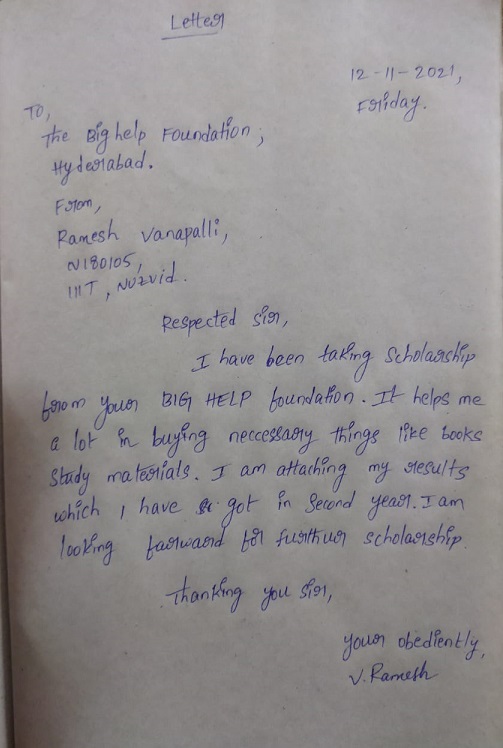 Letter
12-11-2021,
Friday.
To,
The Big help Foundation,
Hyderabad.
From,
Ramesh Vanapalli,
N180105,
IIIT, Nuzvid.
Respected sir,
I have been taking Scholarship
from your BIG HELP foundation. It helps me
a lot in buying neccessary things like books
study materials. I am attaching my results
which I have got in second year. I am
looking farward for furthur scholarship.
Thanking you sir,
your obediently,
V. Ramesh